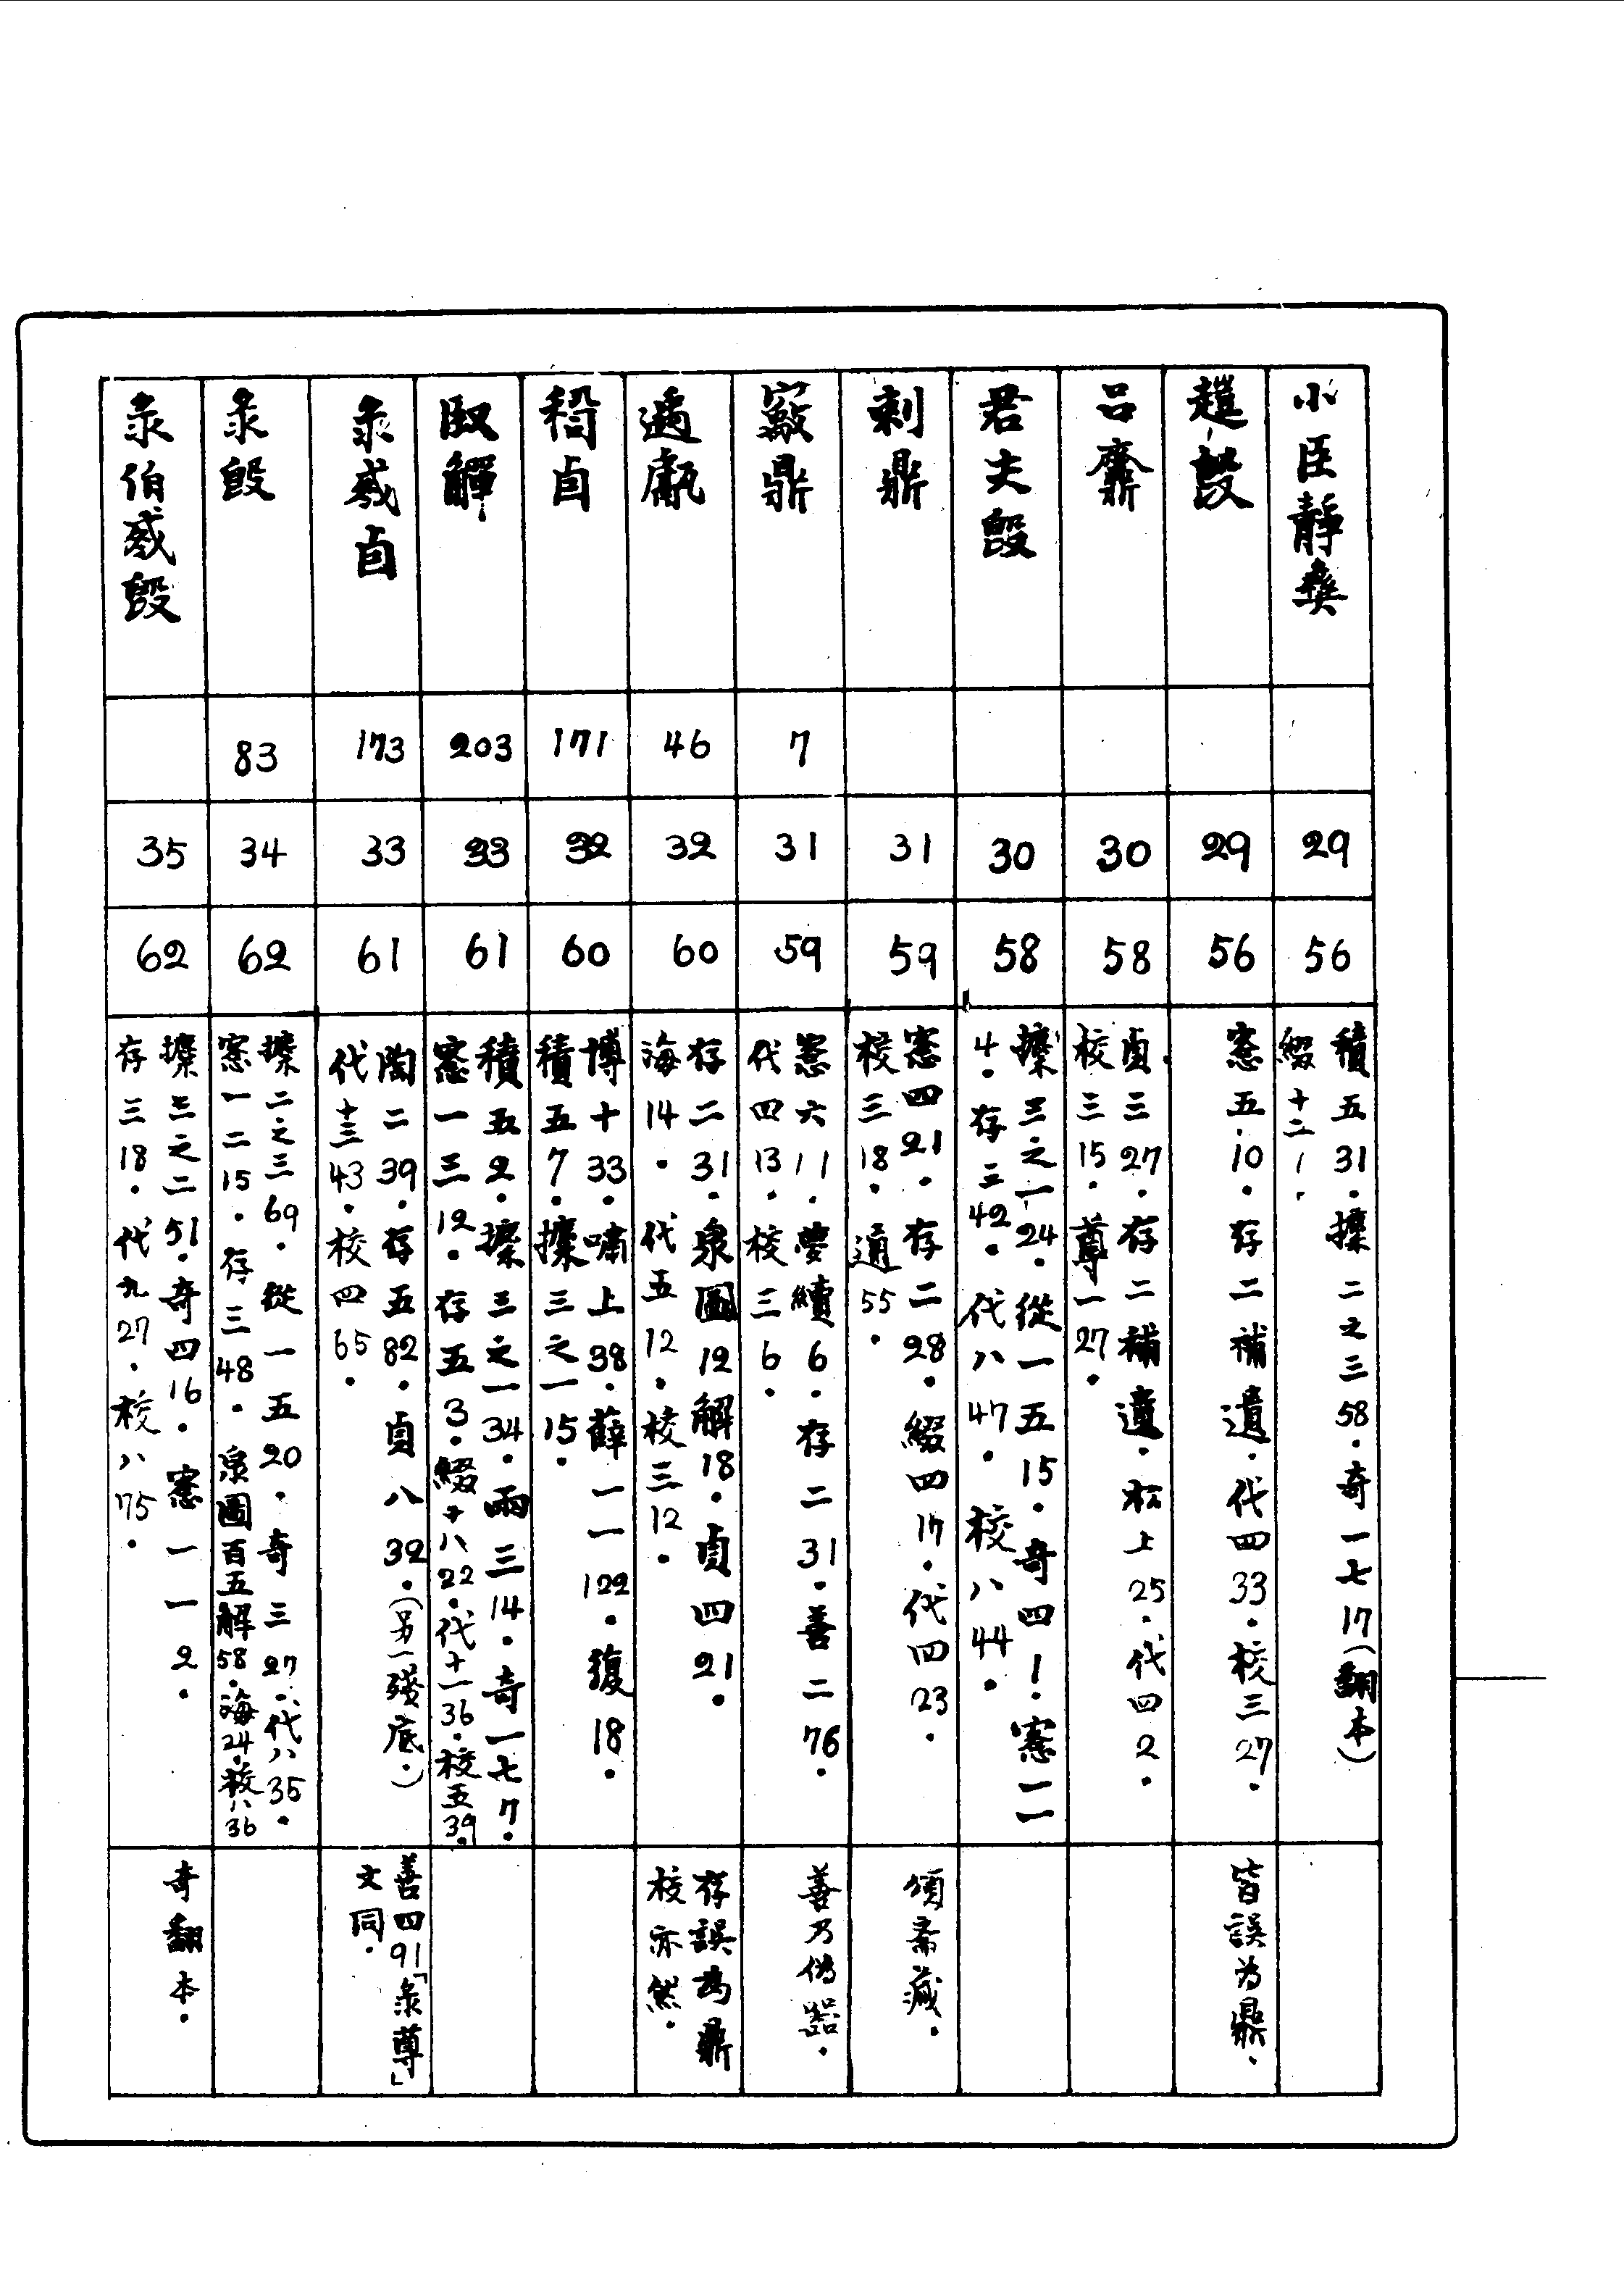 小臣靜彝
29
56
積五31.攈二之三58.奇一七17(翻本)
綴十二1.
趞𣪘
29
56
窓五10.存二補遺.代四33.校三27.
皆誤为鼎.
呂鼒
30
58
貞三27.存二補遺.松上25.代四2.
校三15.尊一27.
君夫𣪘
30
58
攈三之一24.從一五15.奇四1.窓一一
4.存三42.代八47.校八44.
剌鼎
31
59
窓四21.存二28.綴四17.代四23.
校三18.通55.
頌斋藏.
𡫳鼎
7
31
59
窓六11.夢續6.存二31.善二76.
代四13.校三6.
善乃偽器.
遇甗
46
32
60
存二31.泉圖12解18.貞四21.
海14.代五12.校三12.
存誤為鼎
校亦然.
稆卣
171
32
60
博十33.嘯上38.薛一一122.復18.
積五7.攈三之一15.
臤觶
203
33
61
積五2.攈三之一34.兩三14.奇一七7.
窓一三12.存五3.綴十八22.代十一36.校五39.
彔𢦚卣
173
33
61
陶二39.存五82.貞八32.(另一殘底.)
代十三43.校四65.
善四91「彔尊」
文同.
彔𣪘
83
34
62
攈二之三69.從一五20.奇三27.代八35.
窓一二15.存三48.泉圖百五解58.海24.校八36
彔伯𢦚𣪘
35
62
攈三之二51.奇四16.窓一一2.
存三18.代九27.校八75.
奇翻本.